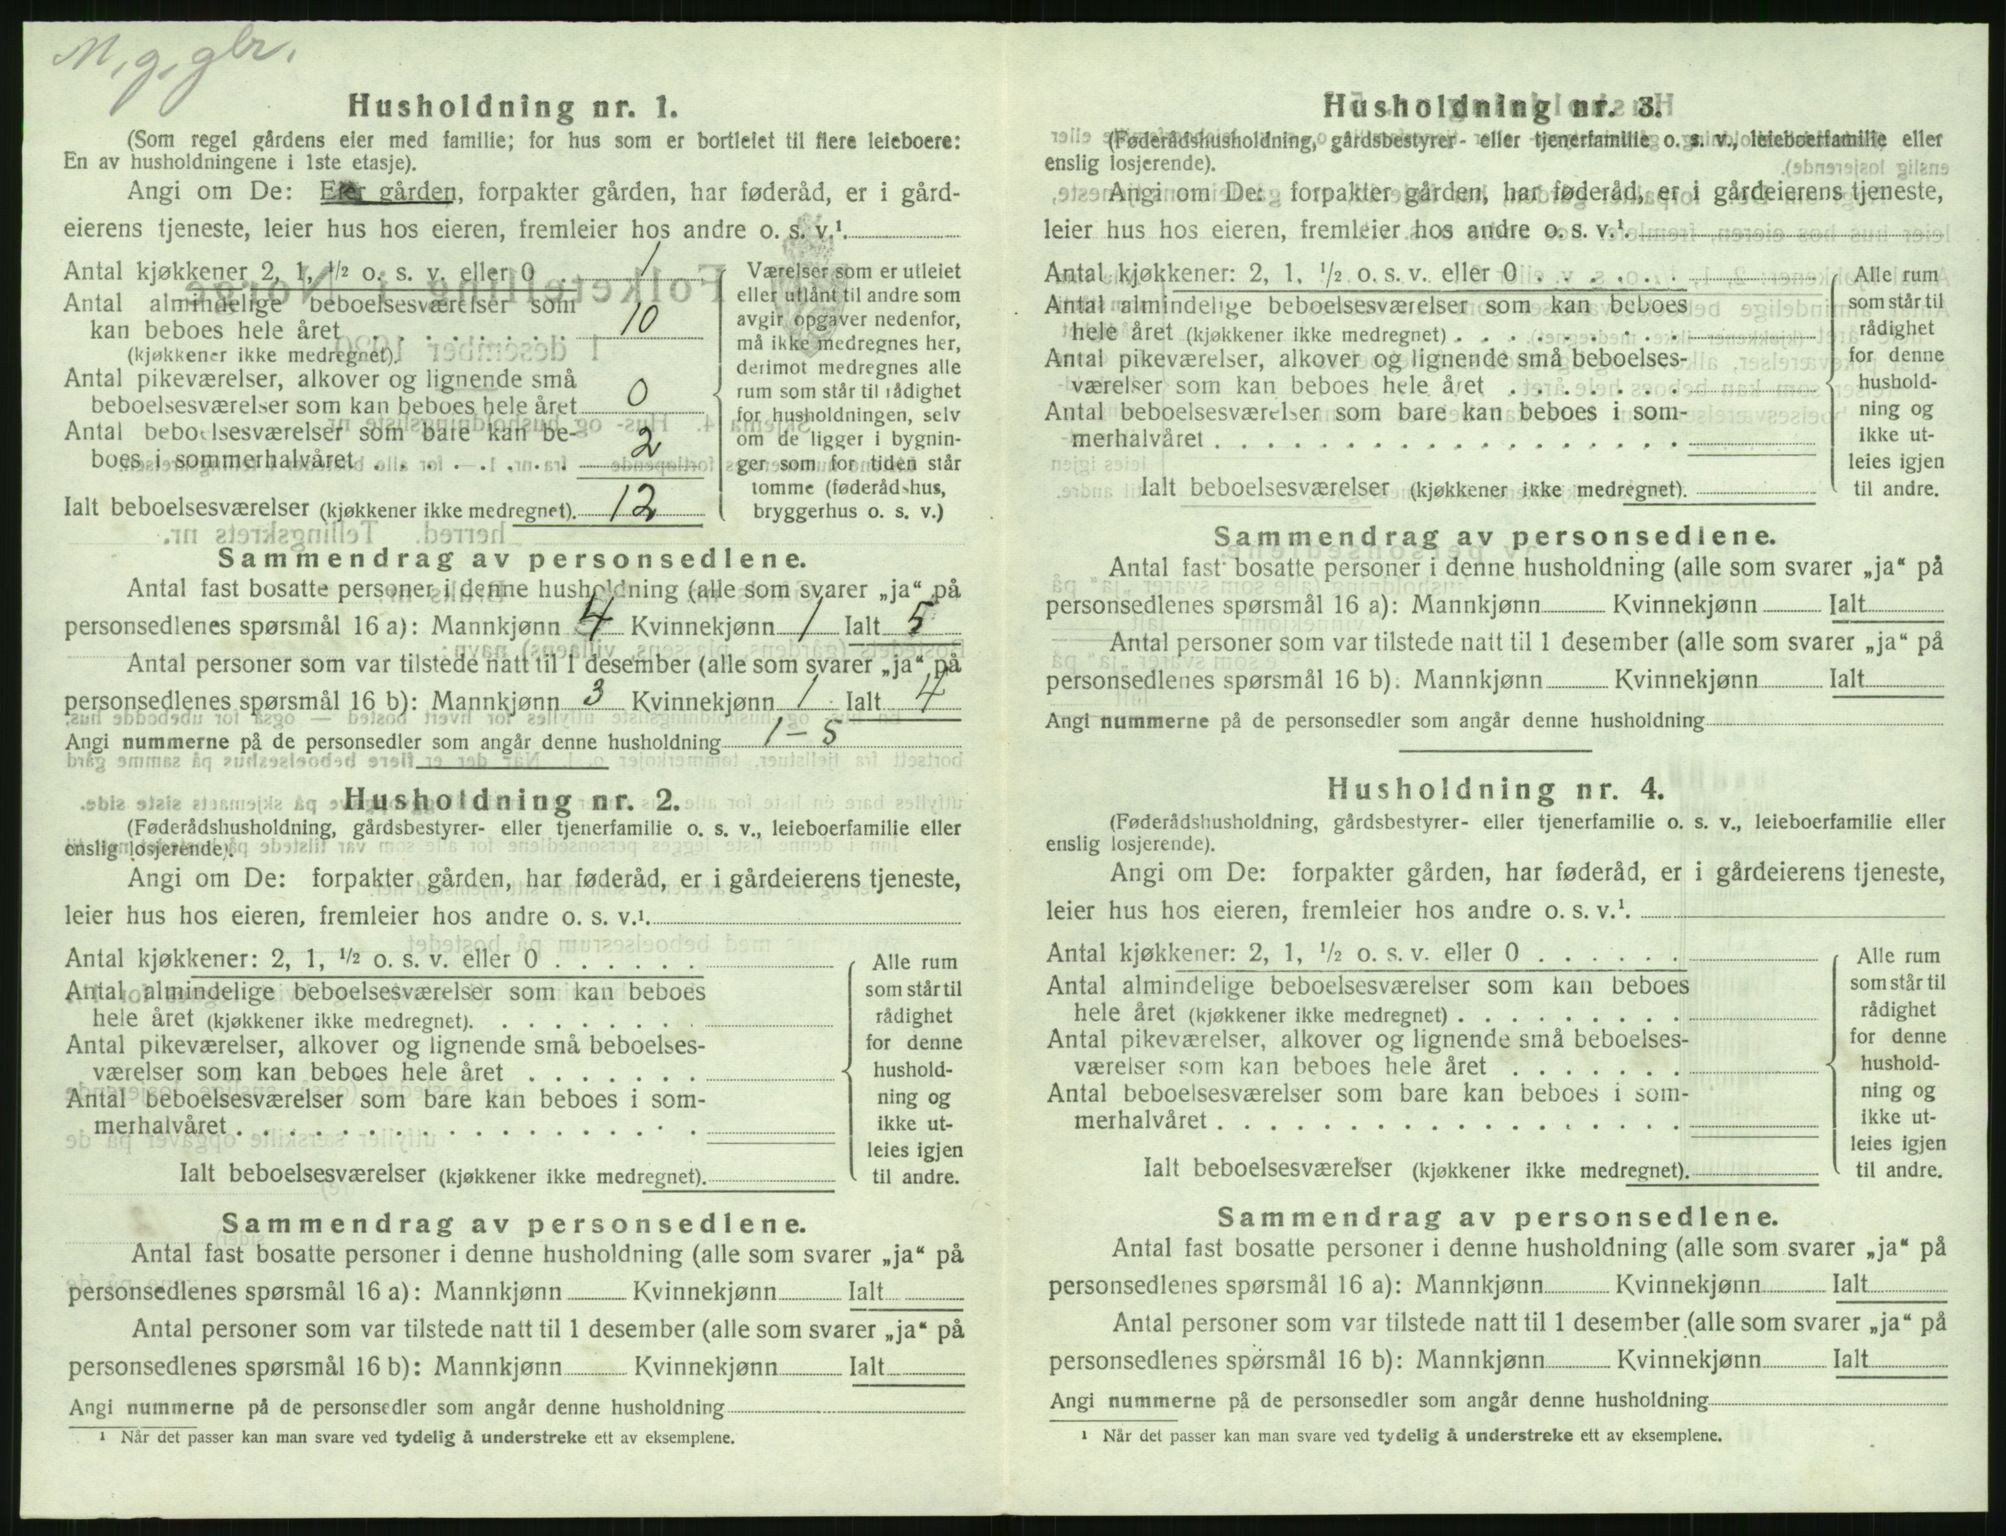 M, g, gbr.
Husholdning nr. 1.
(Som regel gårdens eier med familie; for hus som er bortleiet til flere leieboere:
En av husholdningene i 1ste etasje).
Angi om De: Eier gården, forpakter gården, har føderåd, er i gård-
eierens tjeneste, leier hus hos eieren, fremleier hos andre o. s. v.¹
Antal kjøkkener 2, 1, 1/2 o. s. v. eller 0 1
Antal almindelige beboelsesværelser som
kan beboes hele året 10
(kjøkkener ikke medregnet).
Antal pikeværelser, alkover og lignende små
beboelsesværelser som kan beboes hele året 0
Antal beboelsesværelser som bare kan be-
boes i sommerhalvåret 2
Ialt beboelsesværelser (kjøkkener ikke medregnet). 12
Værelser som er utleiet
eller utlånt til andre som
avgir opgaver nedenfor,
må ikke medregnes her,
derimot medregnes alle
rum som står til rådighet
for husholdningen, selv
om de ligger i bygnin-
ger som for tiden står
tomme (føderådshus,
bryggerhus o. s. v.)
Sammendrag av personsedlene.
Antal fast bosatte personer i denne husholdning (alle som svarer „ja“ på
personsedlenes spørsmål 16 a): Mannkjønn 4 Kvinnekjønn 1 Ialt 5
Antal personer som var tilstede natt til 1 desember (alle som svarer „ja“ på
personsedlenes spørsmål 16 b): Mannkjønn 3 Kvinnekjønn 1 Ialt 4
Angi nummerne på de personsedler som angår denne husholdning 1–5
Husholdning nr. 2.
(Føderådshusholdning, gårdsbestyrer- eller tjenerfamilie o. s. v., leieboerfamilie eller
enslig losjerende).
Angi om De: forpakter gården, har føderåd, er i gårdeierens tjeneste,
leier hus hos eieren, fremleier hos andre o. s. v.¹
Antal kjøkkener: 2, 1, 1/2 o. s. v. eller 0
Antal almindelige beboelsesværelser som kan beboes
hele året (kjøkkener ikke medregnet).
Antal pikeværelser, alkover og lignende små beboelses-
værelser som kan beboes hele året
Antal beboelsesværelser som bare kan beboes i som-
merhalvåret
Ialt beboelsesværelser (kjøkkener ikke medregnet).
Alle rum
som står til
rådighet
for denne
hushold-
ning og
ikke ut-
leies igjen
til andre.
Sammendrag av personsedlene.
Antal fast bosatte personer i denne husholdning (alle som svarer „ja“ på
personsedlenes spørsmål 16 a): Mannkjønn Kvinnekjønn Ialt
Antal personer som var tilstede natt til 1 desember (alle som svarer „ja“ på
personsedlenes spørsmål 16 b): Mannkjønn Kvinnekjønn Ialt
Angi nummerne på de personsedler som angår denne husholdning
¹ Når det passer kan man svare ved tydelig å understreke ett av eksemplene.
Husholdning nr. 3.
(Føderådshusholdning, gårdsbestyrer- eller tjenerfamilie o. s. v., leieboerfamilie eller
enslig losjerende).
Angi om De: forpakter gården, har føderåd, er i gårdeierens tjeneste,
leier hus hos eieren, fremleier hos andre o. s. v.¹
Antal kjøkkener: 2, 1, 1/2 o. s. v. eller 0
Antal almindelige beboelsesværelser som kan beboes
hele året (kjøkkener ikke medregnet)
Antal pikeværelser, alkover og lignende små beboelses-
værelser som kan beboes hele året
Antal beboelsesværelser som bare kan beboes i som-
merhalvåret
Ialt beboelsesværelser (kjøkkener ikke medregnet).
Alle rum
som står til
rådighet
for denne
hushold-
ning og
ikke ut-
leies igjen
til andre.
Sammendrag av personsedlene.
Antal fast bosatte personer i denne husholdning (alle som svarer „ja“ på
personsedlenes spørsmål 16 a): Mannkjønn Kvinnekjønn Ialt
Antal personer som var tilstede natt til 1 desember (alle som svarer „ja“ på
personsedlenes spørsmål 16 b): Mannkjønn Kvinnekjønn Ialt
Angi nummerne på de personsedler som angår denne husholdning
Husholdning nr. 4.
(Føderådshusholdning, gårdsbestyrer- eller tjenerfamilie o. s. v., leieboerfamilie eller
enslig losjerende).
Angi om De: forpakter gården, har føderåd, er i gårdeierens tjeneste,
leier hus hos eieren, fremleier hos andre o. s. v.¹
Antal kjøkkener: 2, 1, 1/2 o. s. v. eller 0
Antal almindelige beboelsesværelser som kan beboes
hele året (kjøkkener ikke medregnet)
Antal pikeværelser, alkover og lignende små beboelses-
værelser som kan beboes hele året
Antal beboelsesværelser som bare kan beboes i som-
merhalvåret
Ialt beboelsesværelser (kjøkkener ikke medregnet).
Alle rum
som står til
rådighet
for denne
hushold-
ning og
ikke ut-
leies igjen
til andre.
Sammendrag av personsedlene.
Antal fast bosatte personer i denne husholdning (alle som svarer „ja“ på
personsedlenes spørsmål 16 a): Mannkjønn Kvinnekjønn Ialt
Antal personer som var tilstede natt til 1 desember (alle som svarer „ja“ på
personsedlenes spørsmål 16 b): Mannkjønn Kvinnekjønn Ialt
Angi nummerne på de personsedler som angår denne husholdning
¹ Når det passer kan man svare ved tydelig å understreke ett av eksemplene.